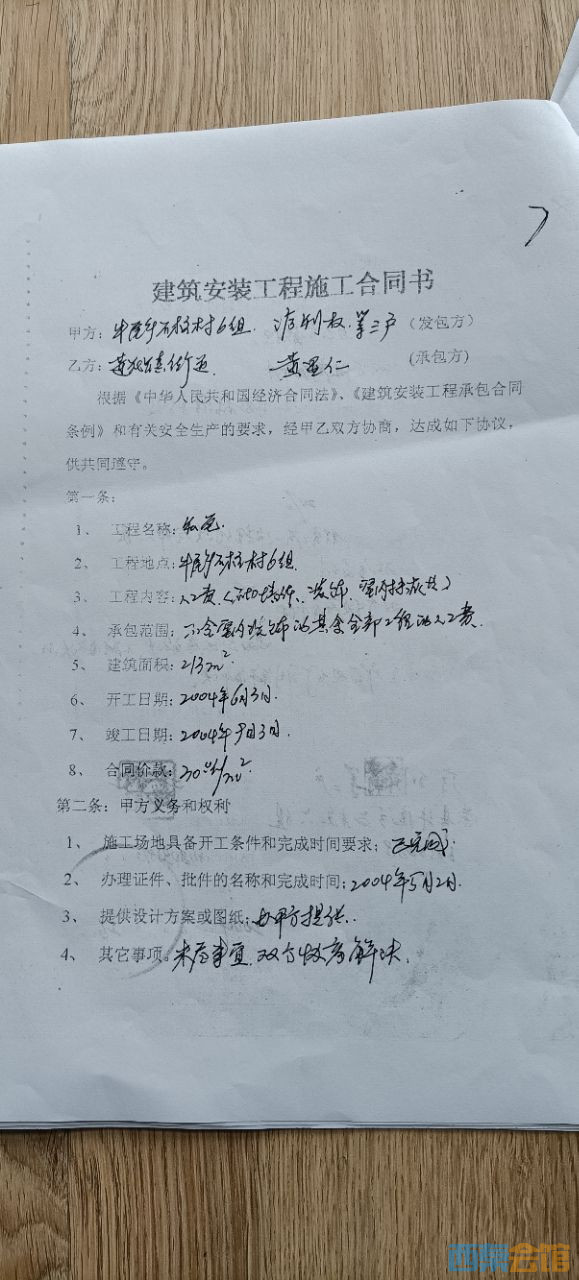 建筑安装工程施工合同书
甲方：石柱村6组 （发包方）
乙方：黄 仁 （承包方）
根据《中华人民共和国经济合同法》、《建筑安装工程承包合同
条例》和有关安全生产的要求，经甲乙双方协商，达成如下协议，
供共同遵守。
第一条：
1、 工程名称：
2、 工程地点：石柱村6组
3、 工程内容：人工费 装饰
4、 承包范围：全部工程的人工费
5、 建筑面积：213m²
6、 开工日期：2004年6月3日
7、 竣工日期：2004年 月3日
8、 合同价款：
第二条：甲方义务和权利
1、 施工场地具备开工条件和完成时间要求：已完成
2、 办理证件、批件的名称和完成时间：2004年5月2日
3、 提供设计方案或图纸：由甲方提供
4、 其它事项：未尽事宜，双方 解决
西京会馆